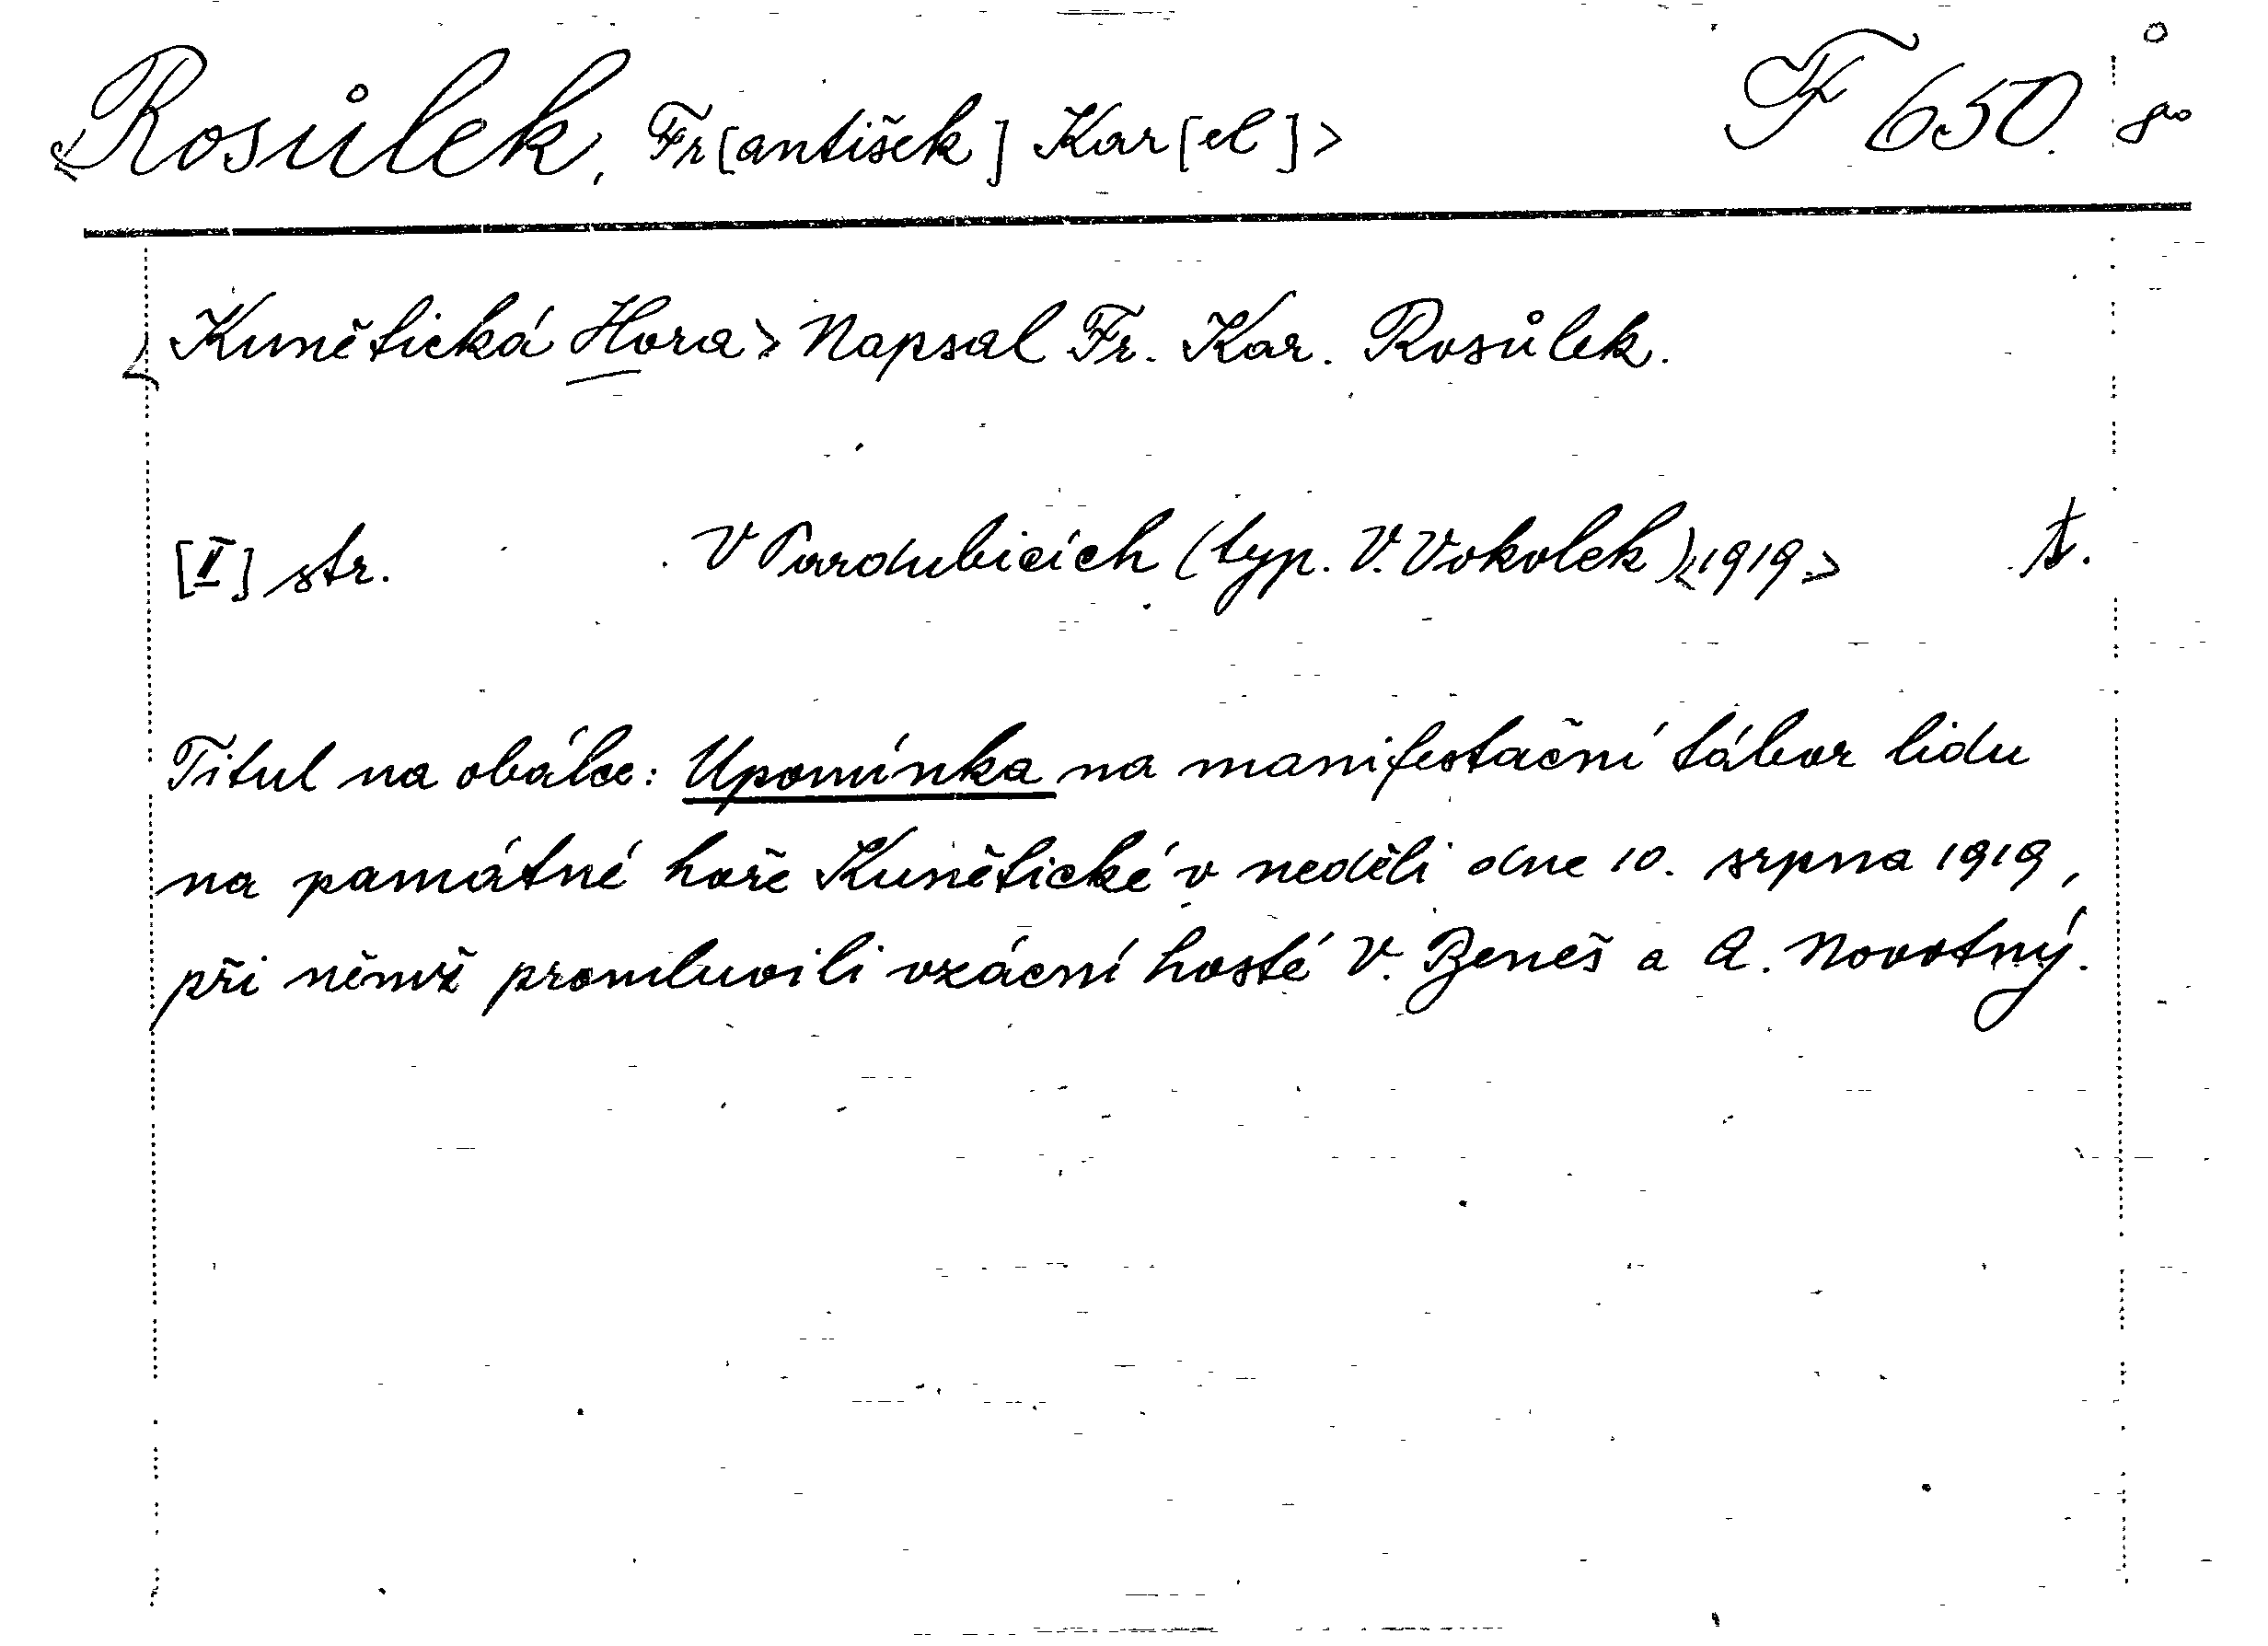 <Rosůlek, Fr[antišek] Kar[el]> F 650. 8°
<Kunětická Hora> Napsal Fr. Kar. Rosůlek.
[II] str. V Pardubicích (typ. V. Vokolek) <1919>
Titul na obálce: Upomínka na manifestační tábor lidu
na památné hoře Kunětické v neděli dne 10. srpna 1919,
při němž promluvili vzácní hosté V. Beneš a A. Novotný.